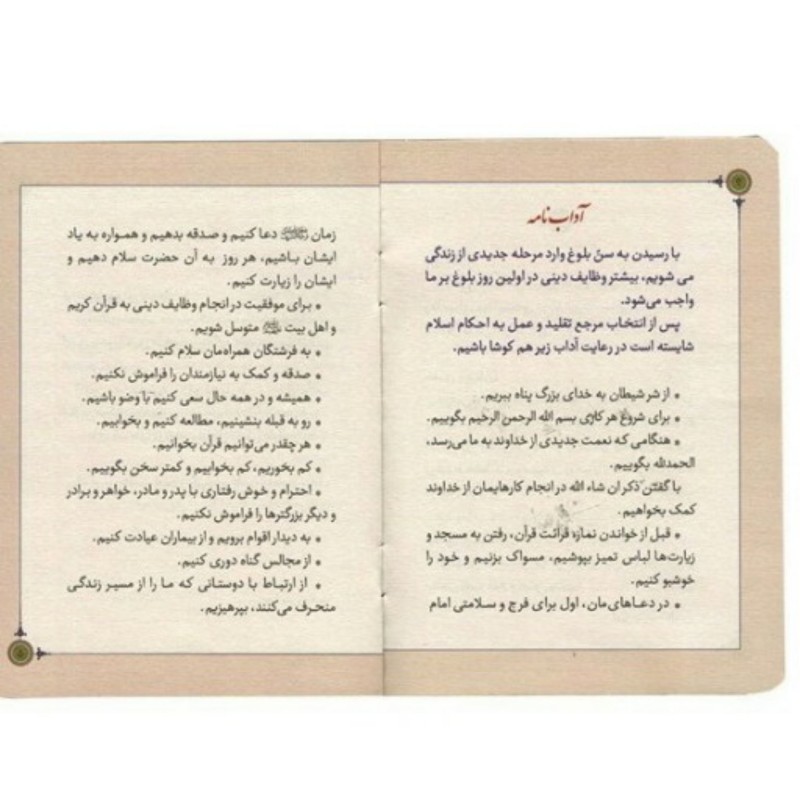 آداب نامه
با رسیدن به سنّ بلوغ وارد مرحله جدیدی از زندگی
می شویم، بیشتر وظایف دینی در اولین روز بلوغ بر ما
واجب می‌شود.
پس از انتخاب مرجع تقلید و عمل به احکام اسلام
شایسته است در رعایت آداب زیر هم کوشا باشیم.
• از شر شیطان به خدای بزرگ پناه ببریم.
• برای شروع هر کاری بسم الله الرحمن الرحیم بگوییم.
• هنگامی که نعمت جدیدی از خداوند به ما می‌رسد،
الحمدلله بگوییم.
با گفتن ذکر ان شاء الله در انجام کارهایمان از خداوند
کمک بخواهیم.
• قبل از خواندن نماز، قرائت قرآن، رفتن به مسجد و
زیارت‌ها لباس تمیز بپوشیم، مسواک بزنیم و خود را
خوشبو کنیم.
• در دعاهای‌مان، اول برای فرج و سلامتی امام
زمان دعا کنیم و صدقه بدهیم و همواره به یاد
ایشان باشیم، هر روز به آن حضرت سلام دهیم و
ایشان را زیارت کنیم.
• برای موفقیت در انجام وظایف دینی به قرآن کریم
و اهل بیت متوسل شویم.
• به فرشتگان همراه‌مان سلام کنیم.
• صدقه و کمک به نیازمندان را فراموش نکنیم.
• همیشه و در همه حال سعی کنیم با وضو باشیم.
• رو به قبله بنشینیم، مطالعه کنیم و بخوابیم.
• هر چقدر می‌توانیم قرآن بخوانیم.
• کم بخوریم، کم بخوابیم و کمتر سخن بگوییم.
• احترام و خوش رفتاری با پدر و مادر، خواهر و برادر
و دیگر بزرگترها را فراموش نکنیم.
• به دیدار اقوام برویم و از بیماران عیادت کنیم.
• از مجالس گناه دوری کنیم.
• از ارتباط با دوستانی که ما را از مسیر زندگی
منحرف می‌کنند، بپرهیزیم.